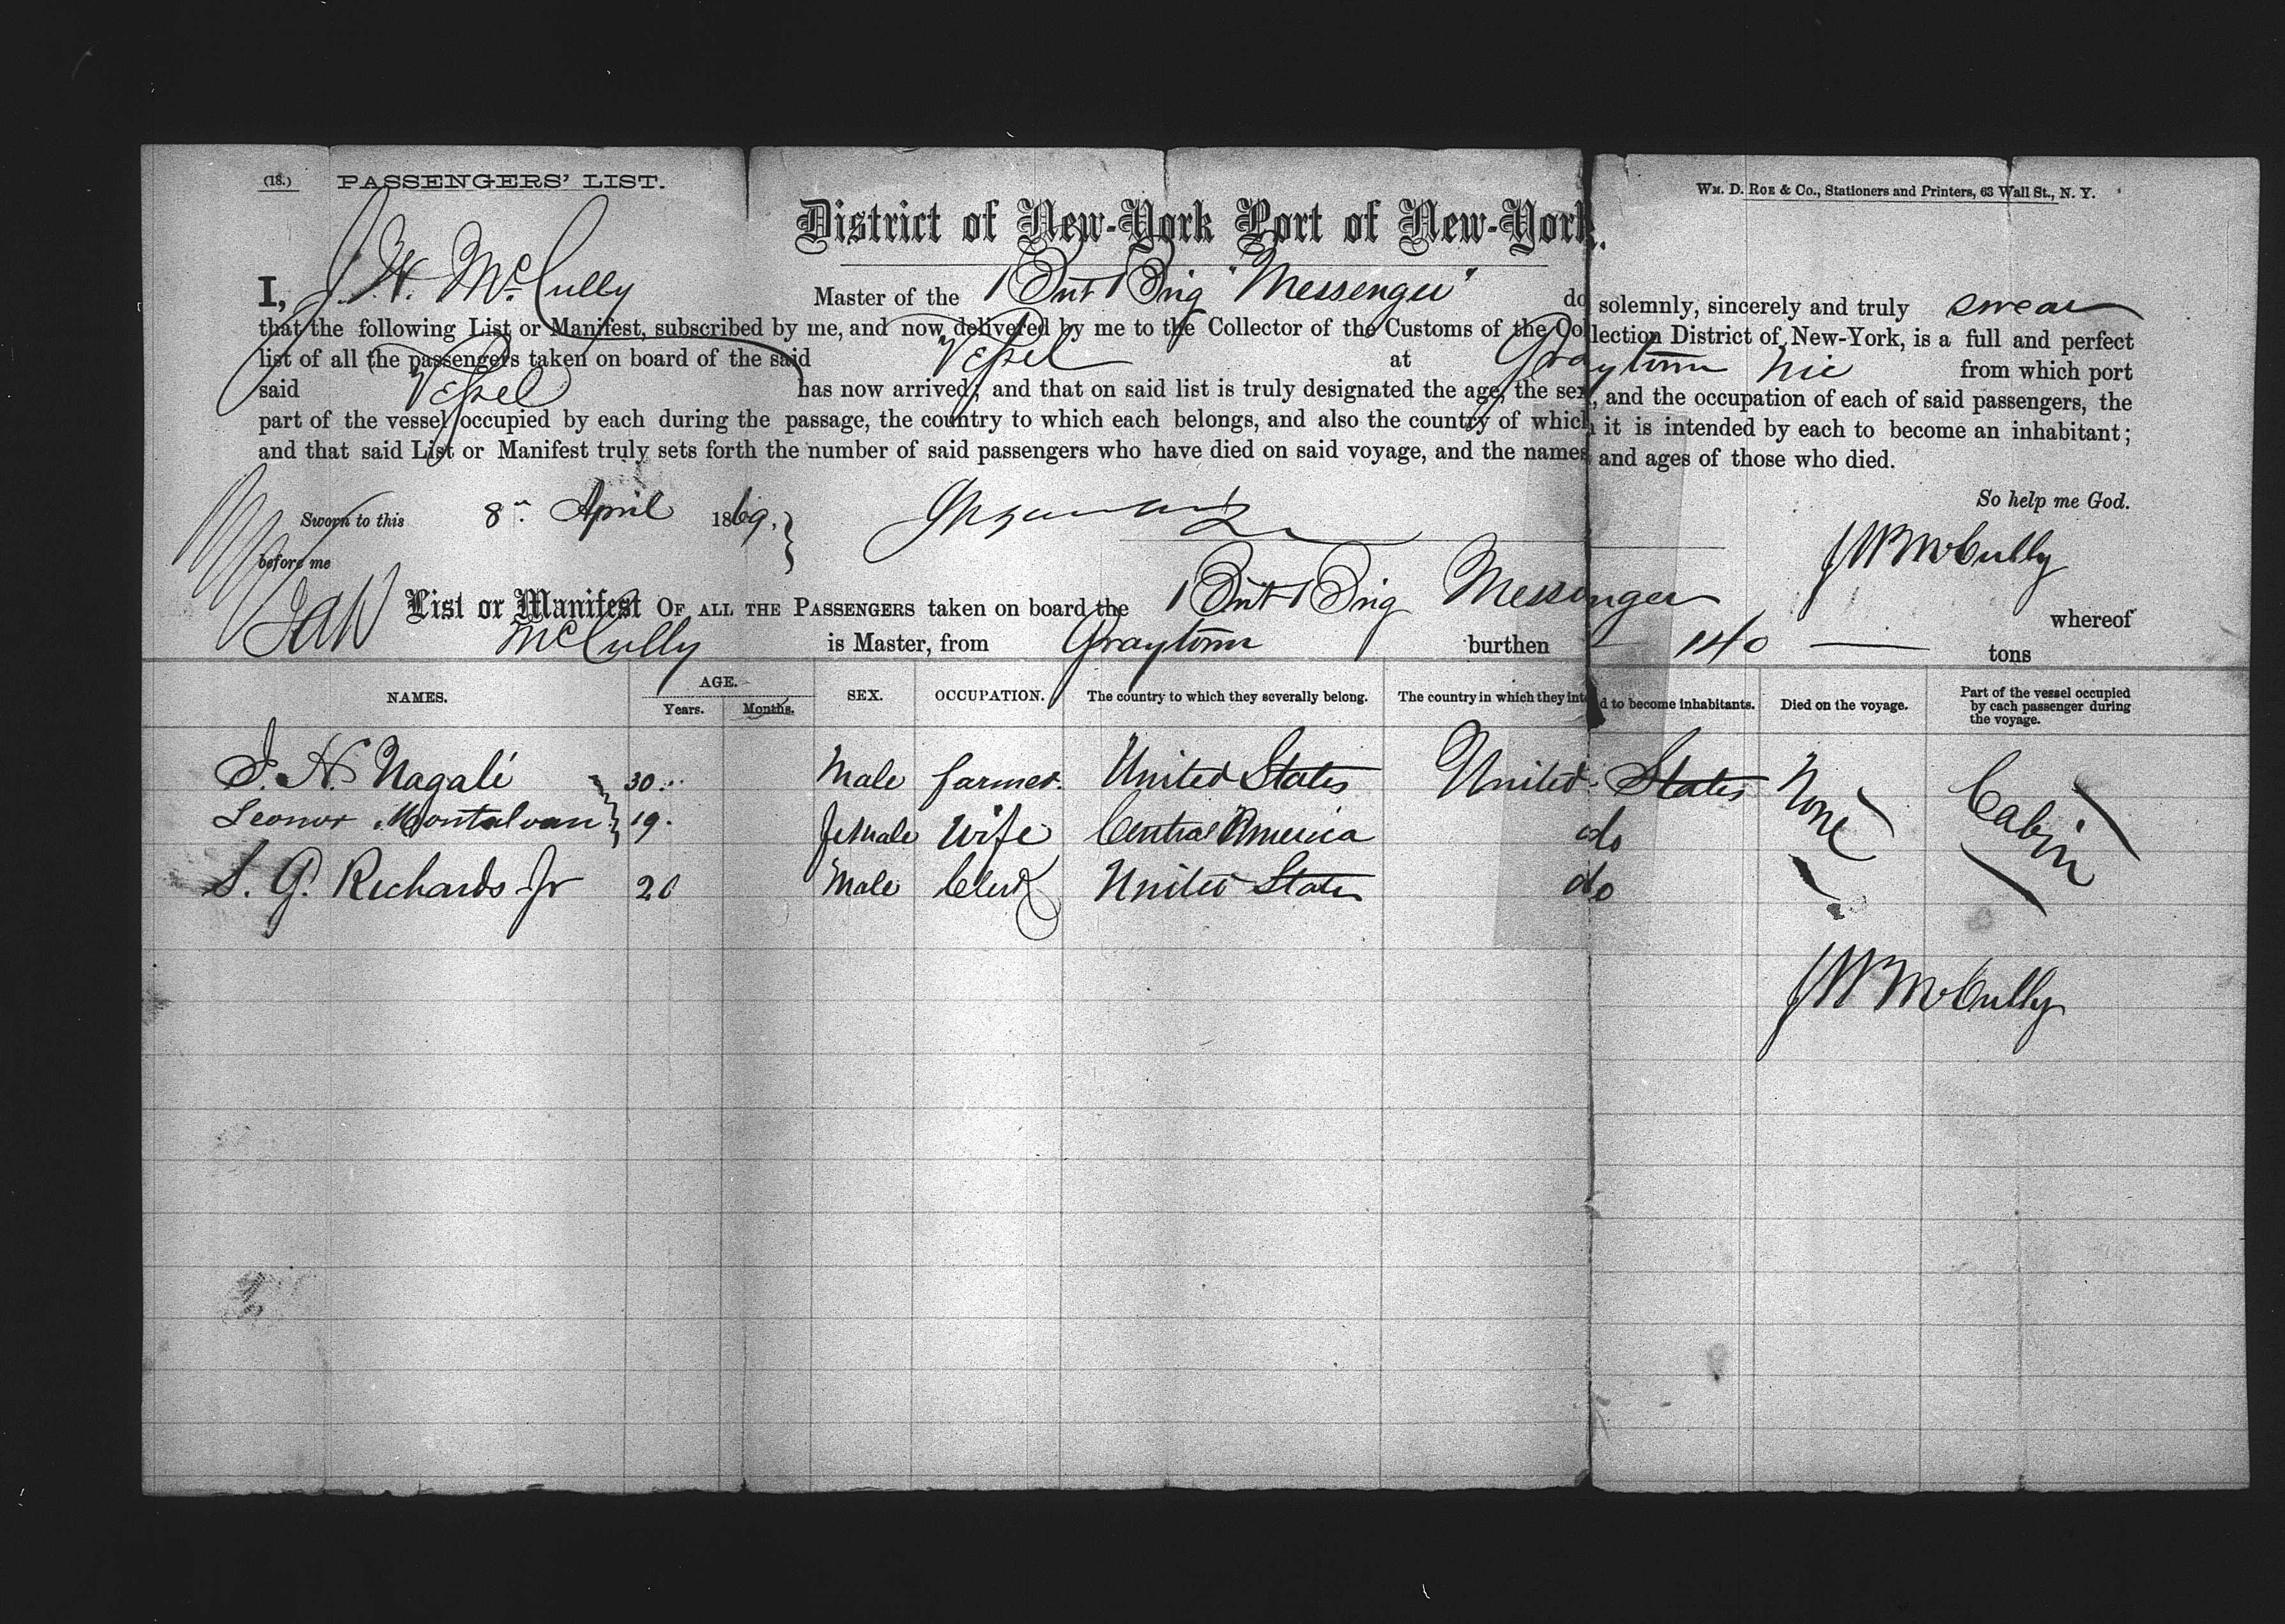 (18.) PASSENGERS' LIST.
WM. D. ROE & Co., Stationers and Printers, 63 Wall St., N. Y.
District of New-York Port of New-York.
I, J. W. McCully Master of the Brit Brig "Messenger" do solemnly, sincerely and truly swear
that the following List or Manifest, subscribed by me, and now delivered by me to the Collector of the Customs of the Collection District of New-York, is a full and perfect
list of all the passengers taken on board of the said Vessel at Graytown Nic from which port
said Vessel has now arrived; and that on said list is truly designated the age, the sex, and the occupation of each of said passengers, the
part of the vessel occupied by each during the passage, the country to which each belongs, and also the country of which it is intended by each to become an inhabitant;
and that said List or Manifest truly sets forth the number of said passengers who have died on said voyage, and the names and ages of those who died.
So help me God.
Sworn to this 8th April 1869. }
before me
J W McCully
List or Manifest OF ALL THE PASSENGERS taken on board the Brit Brig Messenger whereof
McCully is Master, from Graytown burthen 140 tons
NAMES. AGE. Years. Months. SEX. OCCUPATION. The country to which they severally belong. The country in which they intend to become inhabitants. Died on the voyage. Part of the vessel occupied by each passenger during the voyage.
J. N. Nagali 30 Male farmer. United States United States None Cabin
Leonor Montalvan 19. female Wife Central America do
S. G. Richards Jr 20 Male Clerk United States do
J W McCully